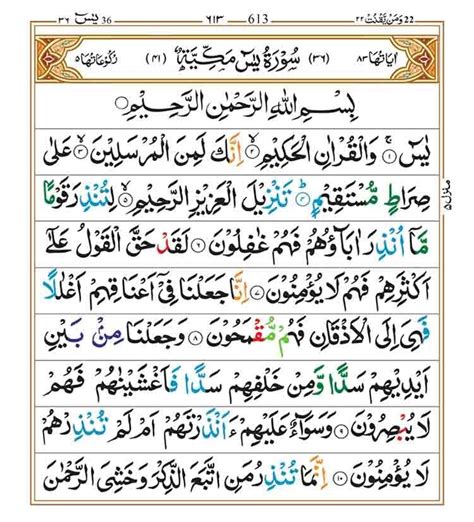 22 وَمَن يَّقْنُتْ ٢٢ 613 ٦١٣ 36 يٰسٓ ٣٦
اٰيَاتُهَا ٨٣ (٣٦) سُوْرَةُ يٰسٓ مَكِّيَّةٌ (٤١) رُكُوْعَاتُهَا ٥
بِسْمِ اللّٰهِ الرَّحْمٰنِ الرَّحِيْمِ
يٰسٓ ۝١ وَالْقُرْاٰنِ الْحَكِيْمِ ۝٢ اِنَّكَ لَمِنَ الْمُرْسَلِيْنَ ۝٣ عَلٰى
صِرَاطٍ مُّسْتَقِيْمٍ ۝٤ تَنْزِيْلَ الْعَزِيْزِ الرَّحِيْمِ ۝٥ لِتُنْذِرَ قَوْمًا
مَّاۤ اُنْذِرَ اٰبَآؤُهُمْ فَهُمْ غٰفِلُوْنَ ۝٦ لَقَدْ حَقَّ الْقَوْلُ عَلٰٓى
اَكْثَرِهِمْ فَهُمْ لَا يُؤْمِنُوْنَ ۝٧ اِنَّا جَعَلْنَا فِيْٓ اَعْنَاقِهِمْ اَغْلٰلًا
فَهِىَ اِلَى الْاَذْقَانِ فَهُمْ مُّقْمَحُوْنَ ۝٨ وَجَعَلْنَا مِنْۢ بَيْنِ
اَيْدِيْهِمْ سَدًّا وَّمِنْ خَلْفِهِمْ سَدًّا فَاَغْشَيْنٰهُمْ فَهُمْ
لَا يُبْصِرُوْنَ ۝٩ وَسَوَآءٌ عَلَيْهِمْ ءَاَنْذَرْتَهُمْ اَمْ لَمْ تُنْذِرْهُمْ
لَا يُؤْمِنُوْنَ ۝١٠ اِنَّمَا تُنْذِرُ مَنِ اتَّبَعَ الذِّكْرَ وَخَشِىَ الرَّحْمٰنَ
منزل ٥